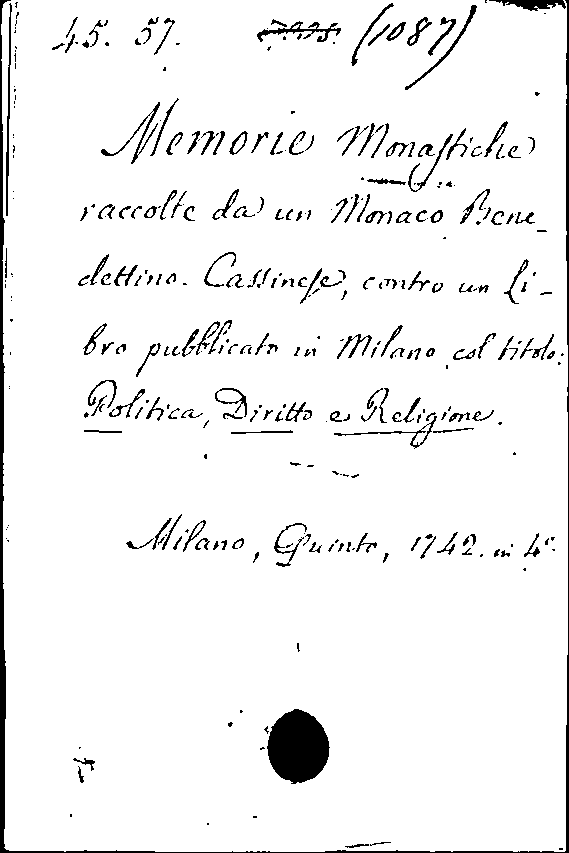 45. 57. (1087)
Memorie Monastiche
raccolte da un Monaco Bene-
dettino Cassinese, contro un Li-
bro pubblicato in Milano col titolo:
Politica, Diritto e Religione.
Milano, Quinto, 1742. in 4°.